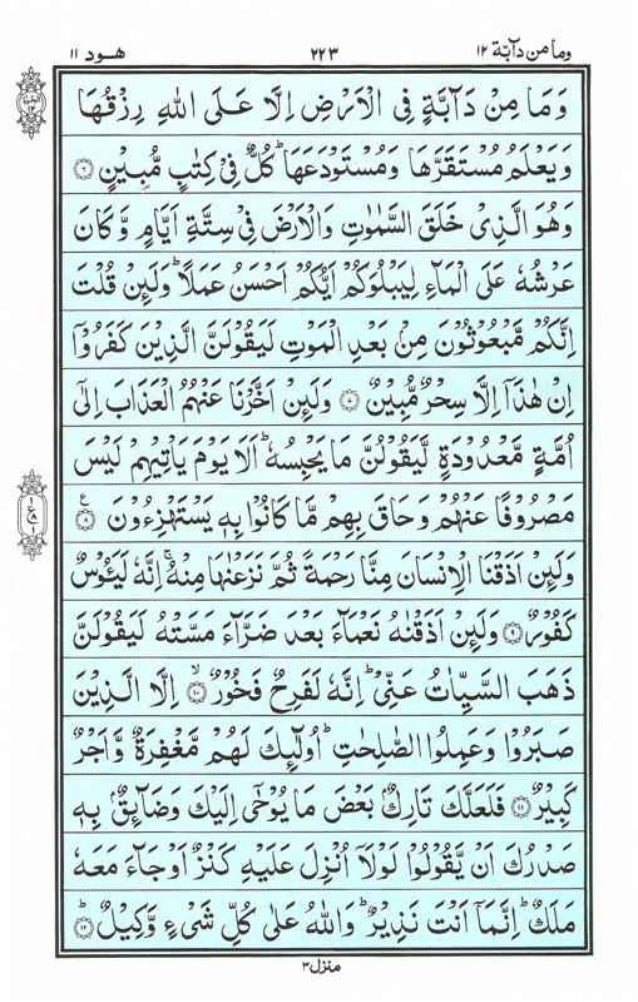 وما من دآبّة ١٢ ٢٢٣ هود ١١
وَمَا مِنْ دَآبَّةٍ فِي الْاَرْضِ اِلَّا عَلَى اللّٰهِ رِزْقُهَا
وَيَعْلَمُ مُسْتَقَرَّهَا وَمُسْتَوْدَعَهَا ؕ كُلٌّ فِيْ كِتٰبٍ مُّبِيْنٍ ۝٦
وَهُوَ الَّذِيْ خَلَقَ السَّمٰوٰتِ وَالْاَرْضَ فِيْ سِتَّةِ اَيَّامٍ وَّكَانَ
عَرْشُهٗ عَلَى الْمَآءِ لِيَبْلُوَكُمْ اَيُّكُمْ اَحْسَنُ عَمَلًا ؕ وَلَئِنْ قُلْتَ
اِنَّكُمْ مَّبْعُوْثُوْنَ مِنْۢ بَعْدِ الْمَوْتِ لَيَقُوْلَنَّ الَّذِيْنَ كَفَرُوْۤا
اِنْ هٰذَاۤ اِلَّا سِحْرٌ مُّبِيْنٌ ۝٧ وَلَئِنْ اَخَّرْنَا عَنْهُمُ الْعَذَابَ اِلٰۤى
اُمَّةٍ مَّعْدُوْدَةٍ لَّيَقُوْلُنَّ مَا يَحْبِسُهٗ ؕ اَلَا يَوْمَ يَاْتِيْهِمْ لَيْسَ
مَصْرُوْفًا عَنْهُمْ وَحَاقَ بِهِمْ مَّا كَانُوْا بِهٖ يَسْتَهْزِءُوْنَ ۝٨ ع
وَلَئِنْ اَذَقْنَا الْاِنْسَانَ مِنَّا رَحْمَةً ثُمَّ نَزَعْنٰهَا مِنْهُ ۚ اِنَّهٗ لَيَـُٔوْسٌ
كَفُوْرٌ ۝٩ وَلَئِنْ اَذَقْنٰهُ نَعْمَآءَ بَعْدَ ضَرَّآءَ مَسَّتْهُ لَيَقُوْلَنَّ
ذَهَبَ السَّيِّاٰتُ عَنِّيْ ؕ اِنَّهٗ لَفَرِحٌ فَخُوْرٌ ۝١٠ ۙ اِلَّا الَّذِيْنَ
صَبَرُوْا وَعَمِلُوا الصّٰلِحٰتِ ؕ اُولٰٓئِكَ لَهُمْ مَّغْفِرَةٌ وَّاَجْرٌ
كَبِيْرٌ ۝١١ فَلَعَلَّكَ تَارِكٌۢ بَعْضَ مَا يُوْحٰۤى اِلَيْكَ وَضَآئِقٌۢ بِهٖ
صَدْرُكَ اَنْ يَّقُوْلُوْا لَوْلَاۤ اُنْزِلَ عَلَيْهِ كَنْزٌ اَوْ جَآءَ مَعَهٗ
مَلَكٌ ؕ اِنَّمَاۤ اَنْتَ نَذِيْرٌ ؕ وَاللّٰهُ عَلٰى كُلِّ شَيْءٍ وَّكِيْلٌ ۝١٢ ؕ
منزل ٣